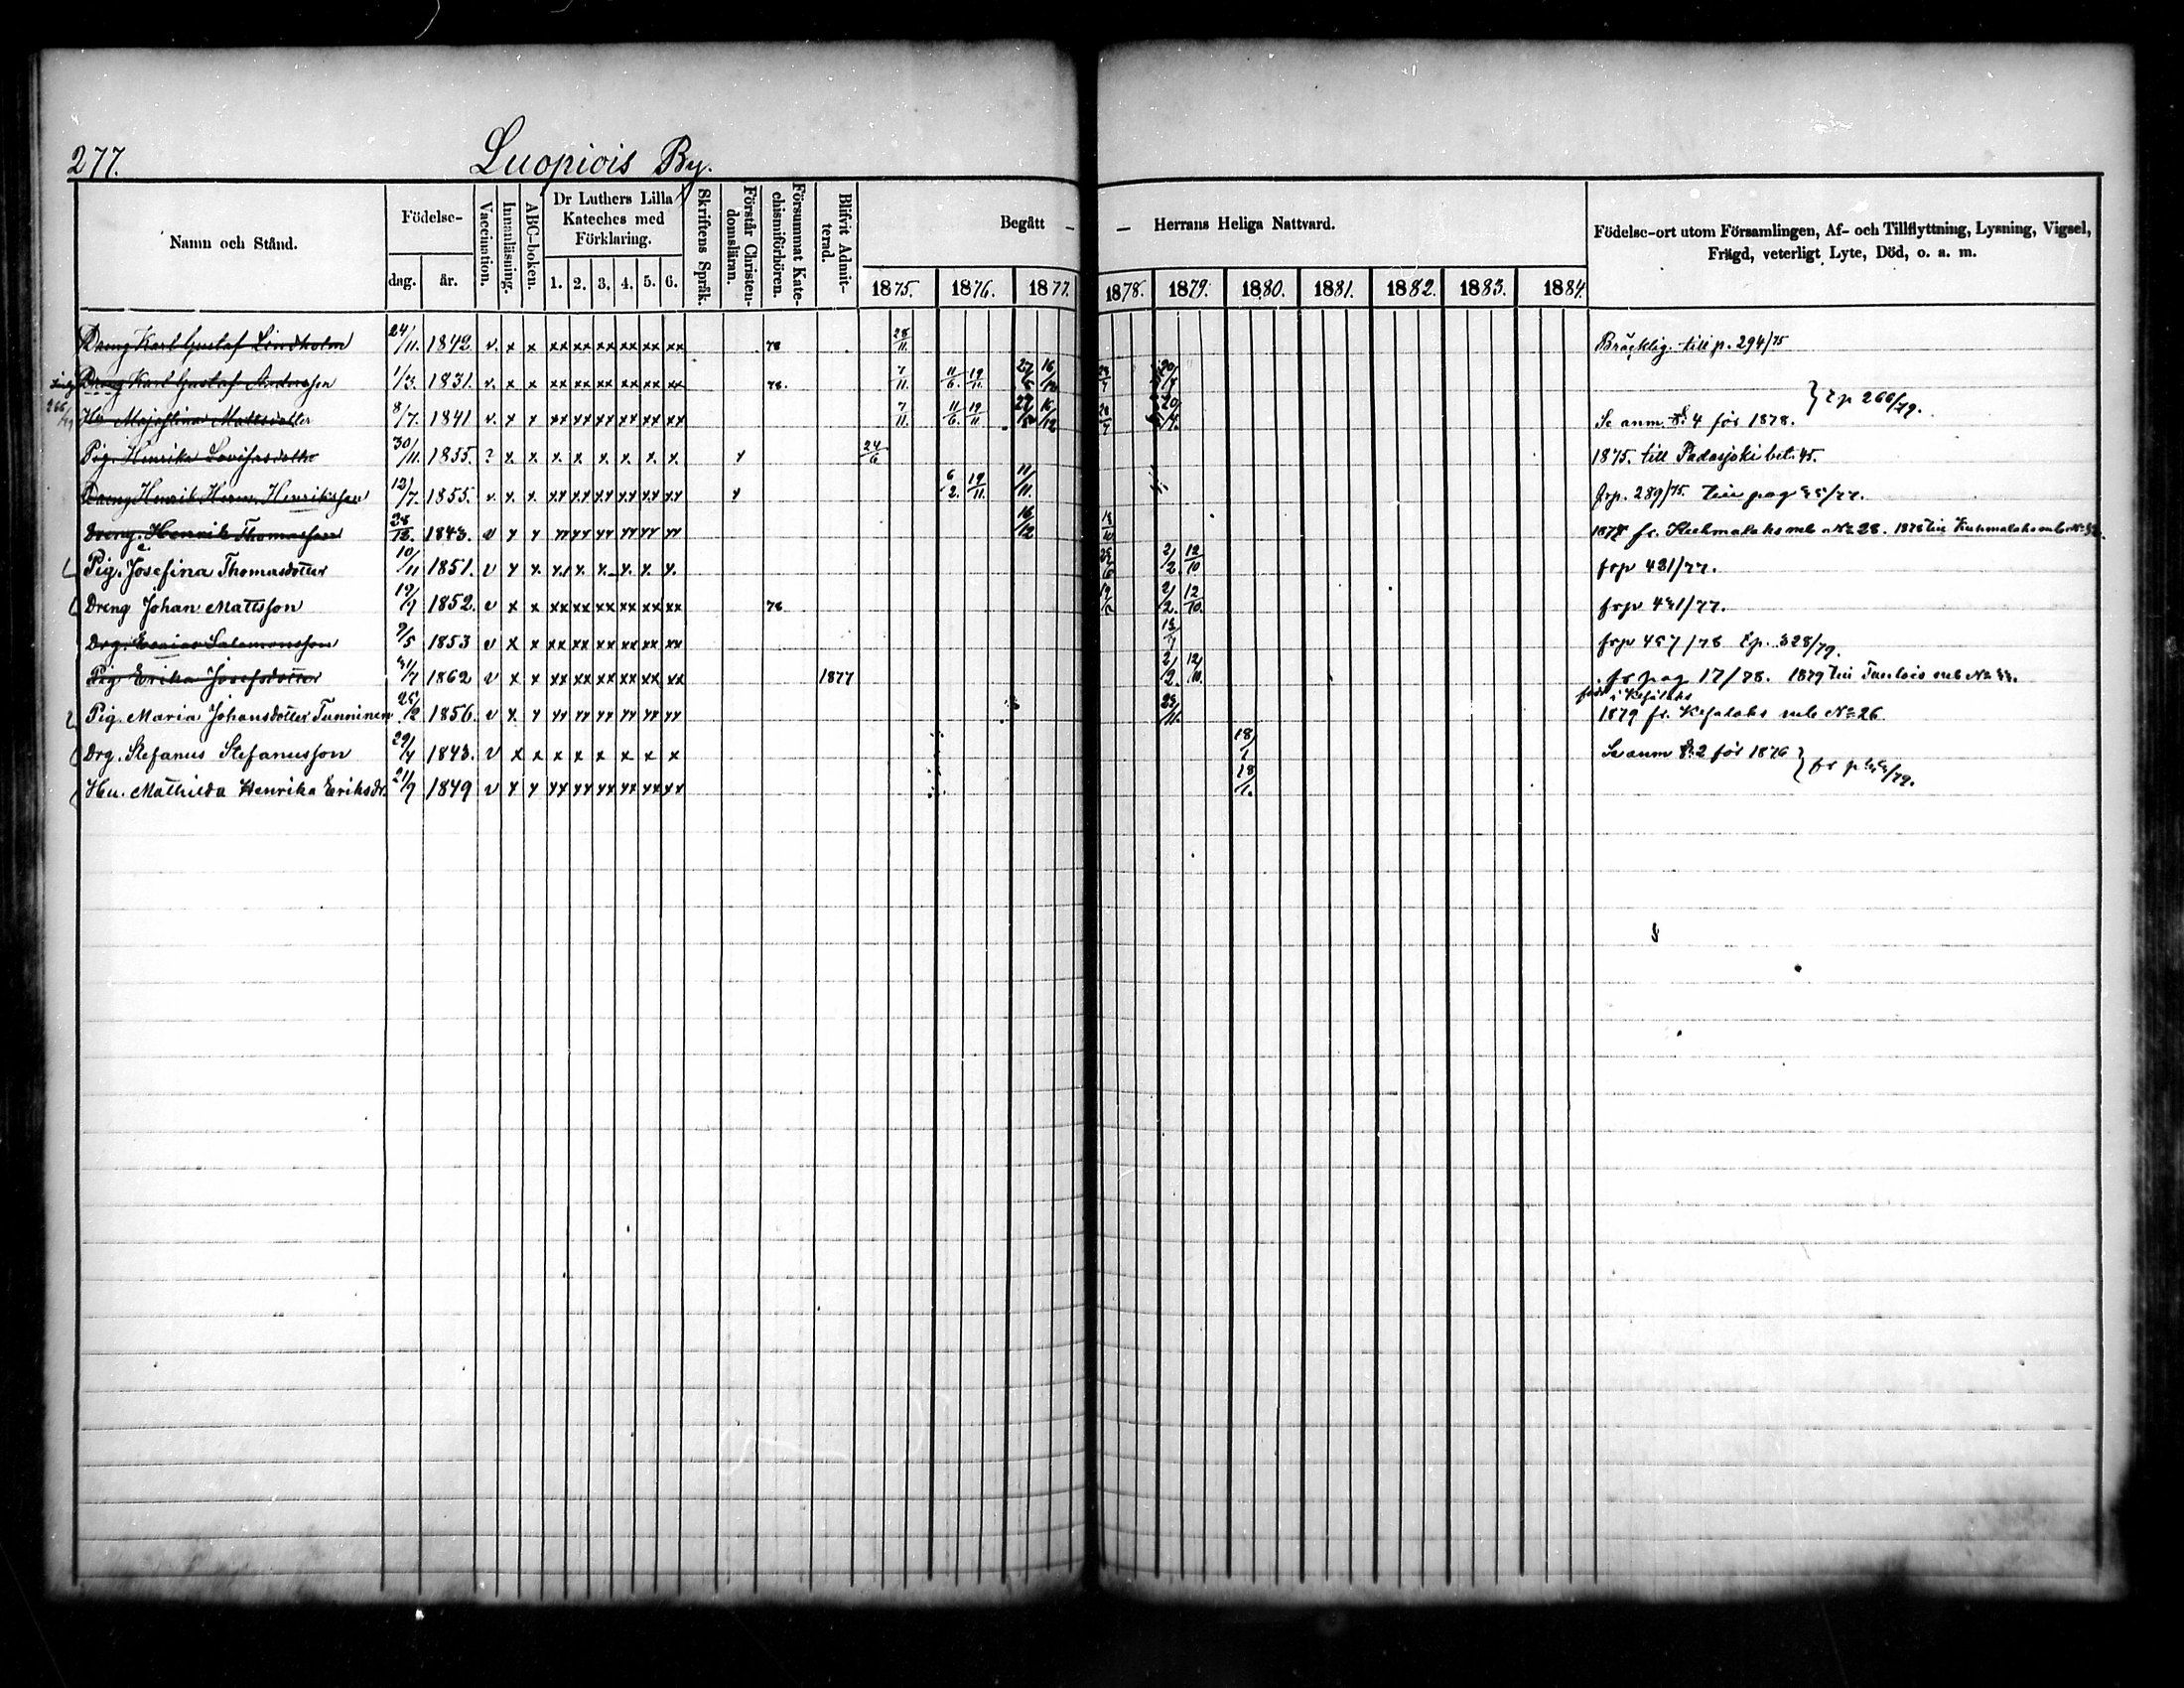 277. Luopiois By.
Namn och Stånd. Födelse- dag. år. Vaccination. Innanläsning. ABC-boken. Dr Luthers Lilla Kateches med Förklaring. 1. 2. 3. 4. 5. 6. Skriftens Språk. Förstår Christen-domsläran. Försummat Kate-chismiförhören. Blifvit Admit-terad. Begått — Herrans Heliga Nattvard. 1875. 1876. 1877. 1878. 1879. 1880. 1881. 1882. 1883. 1884. Födelse-ort utom Församlingen, Af- och Tillflyttning, Lysning, Vigsel, Frägd, veterligt Lyte, Död, o. a. m.
Dreng Karl Gustaf Lindholm 24/11. 1842. v. x x xx xx xx xx xx xx 78 28/11. Bräcklig. till p. 294/75
Dreng Karl Gustaf Andersson 1/3. 1831. v. x x xx xx xx xx xx xx 78. 7/11. 11/6. 19/11.
Hu Maja Stina Mattsdotter 8/7. 1841 v. x x xx xx xx xx xx xx 7/11. 11/6. 19/11 Se anm. 4 för 1878. } t p 266/79.
Pig. Henrika Lovisasdotter 30/11. 1855. ? x. x. x. x. x. x. x. x. x 24/6 1875. till Padasjoki bet. 45.
Dreng Henrik Herm. Henriksson 12/7. 1855. v. x. x. xx xx xx xx xx xx x 6/2. 19/11. 11/11. frp. 289/75.
Dreng. Henrik Thomasson 28/12. 1843. v x x xx xx xx xx xx xx 16/12 1877 fr. Kuhmalaks mb No 28.
Pig. Josefina Thomasdotter 10/11 1851. v x x. x. x. x. x. x. x. 2/2. 12/10 frp 431/77.
Dreng Johan Mattsson 19/7 1852. v x x xx xx xx xx xx xx 78 2/2. 12/10. frp 431/77.
Drg. Esaias Salomonsson 9/5 1853 v x x xx xx xx xx xx xx frp 457/78 tp. 328/79.
Pig Erika Josefsdotter 1862 v x x xx xx xx xx xx xx 1877 2/2. 12/10. fr pag 17/78.
född i Kesälaks
Pig. Maria Johansdotter Tunninen 1856. v x. x xx xx xx xx xx xx 1879 fr. Kesälaks mb No 26.
Drg. Stefanus Stefanusson 29/4 1843. v x x x x x x x x 18/1 Se anm 2 för 1876
Hu. Mathilda Henrika Eriksdr. 21/9 1849 v x x xx xx xx xx xx xx 18/1.